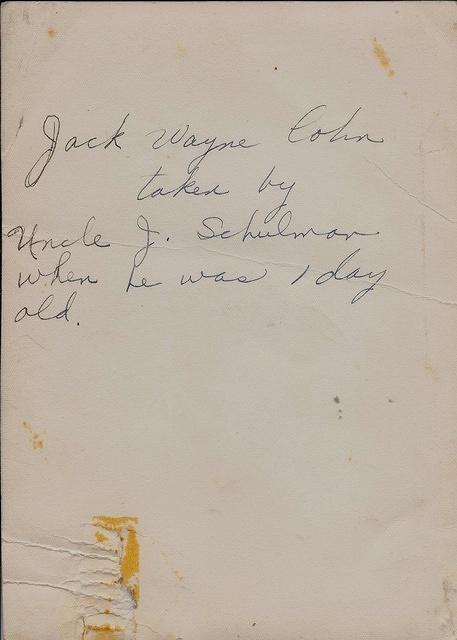 Jack Wayne Cohn
taken by
Uncle J. Schulman
when he was 1 day
old.